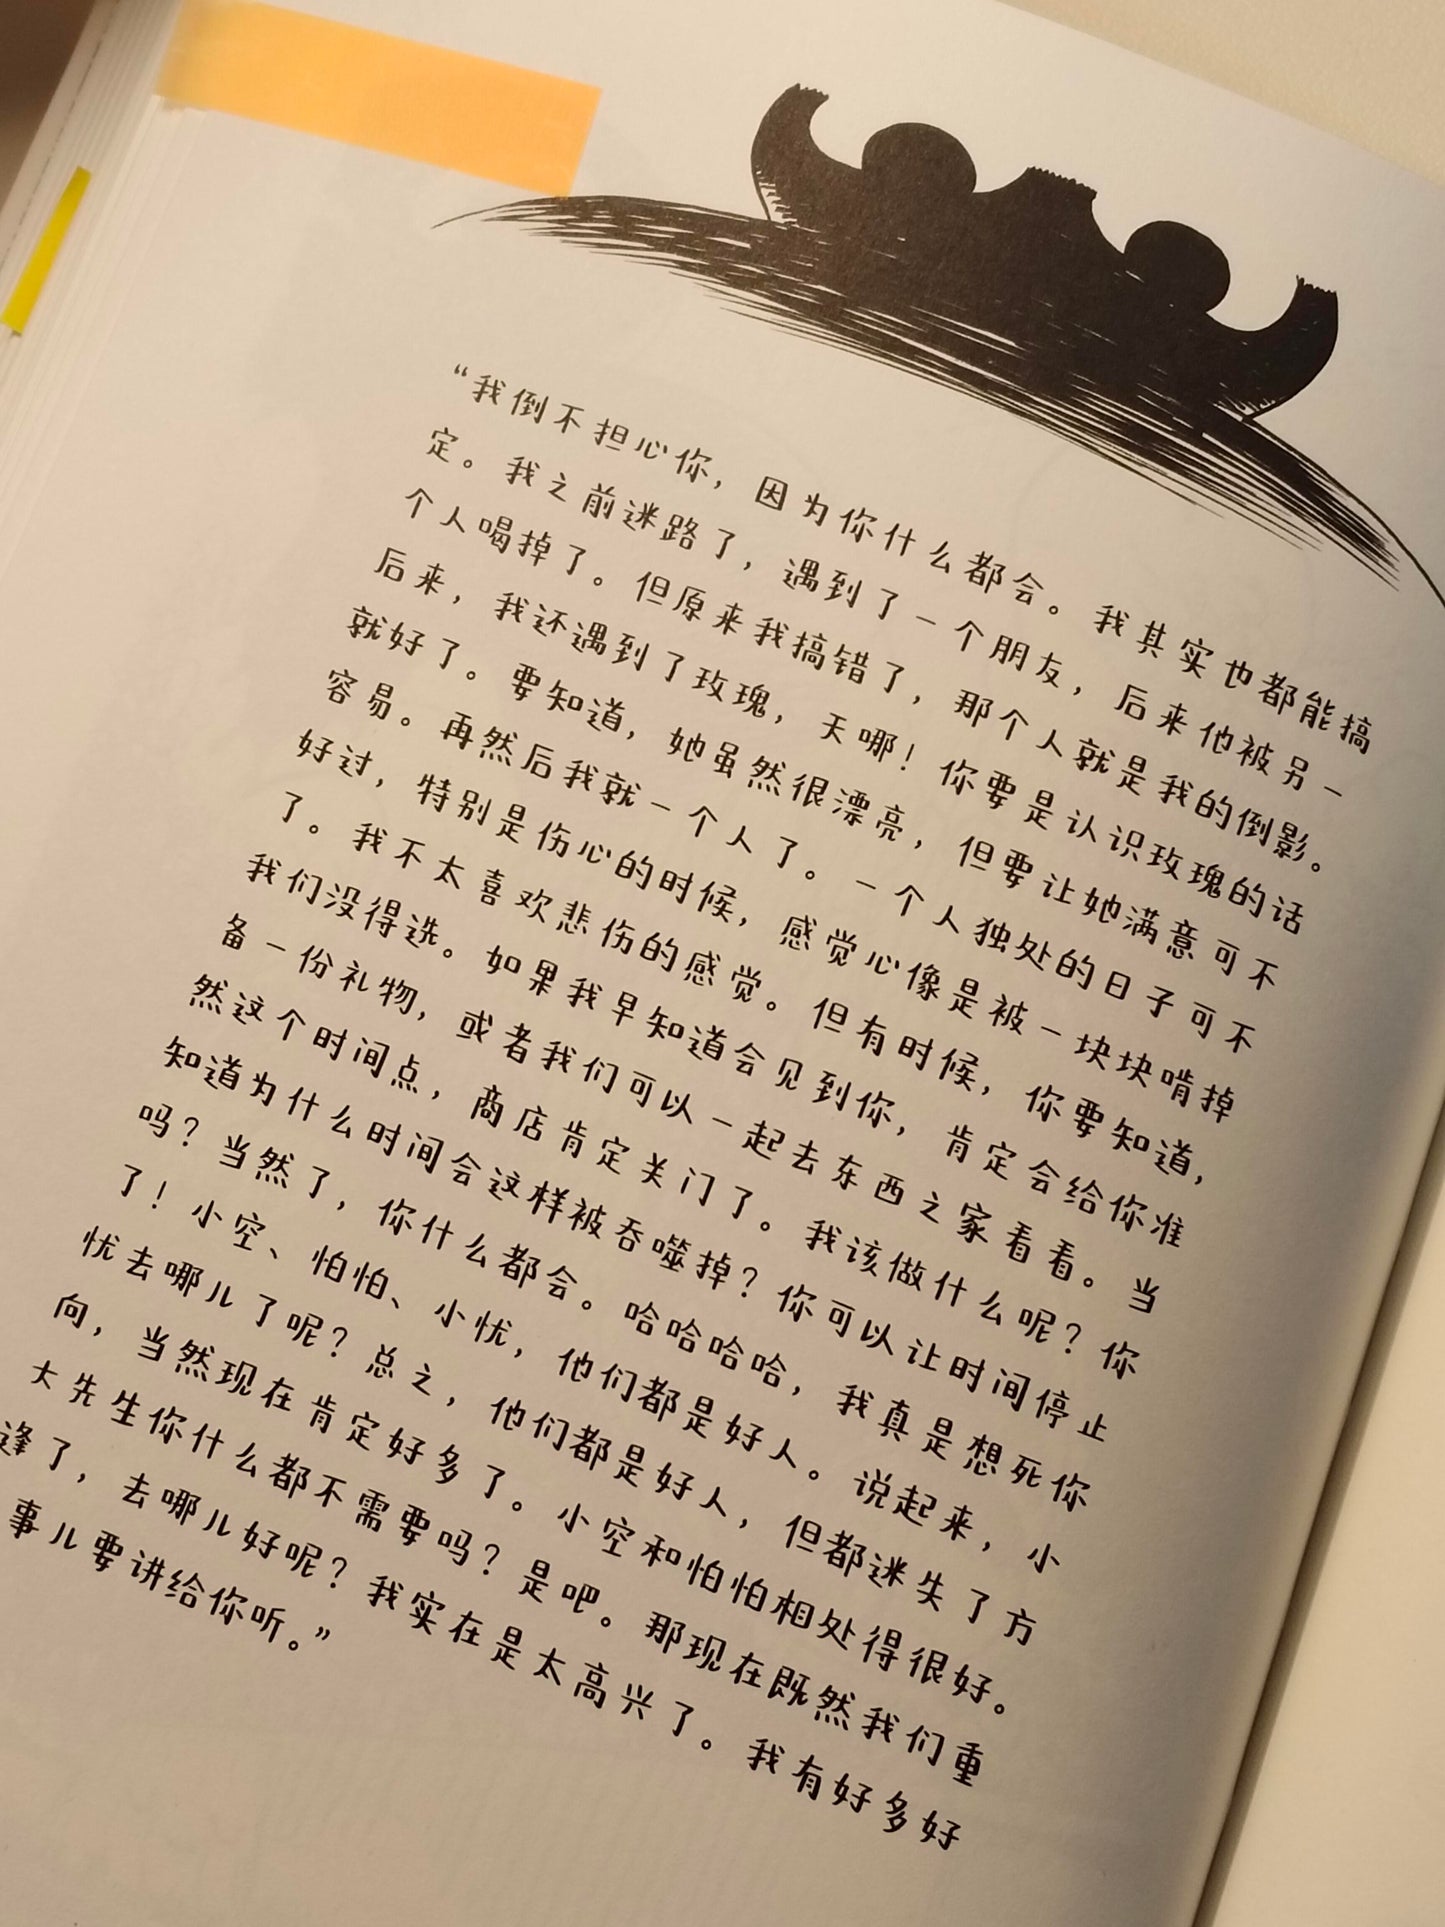 “我倒不担心你，因为你什么都会。我其实也都能搞
定。我之前迷路了，遇到了一个朋友，后来他被另一
个人喝掉了。但原来我搞错了，那个人就是我的倒影。
后来，我还遇到了玫瑰，天哪！你要是认识玫瑰的话
就好了。要知道，她虽然很漂亮，但要让她满意可不
容易。再然后我就一个人了。一个人独处的日子可不
好过，特别是伤心的时候，感觉心像是被一块块啃掉
了。我不太喜欢悲伤的感觉。但有时候，你要知道，
我们没得选。如果我早知道会见到你，肯定会给你准
备一份礼物，或者我们可以一起去东西之家看看。当
然这个时间点，商店肯定关门了。我该做什么呢？你
知道为什么时间会这样被吞噬掉？你可以让时间停止
吗？当然了，你什么都会。哈哈哈哈，我真是想死你
了！小空、怕怕、小忧，他们都是好人。说起来，小
忧去哪儿了呢？总之，他们都是好人，但都迷失了方
向，当然现在肯定好多了。小空和怕怕相处得很好。
大先生你什么都不需要吗？是吧。那现在既然我们重
逢了，去哪儿好呢？我实在是太高兴了。我有好多好
事儿要讲给你听。”